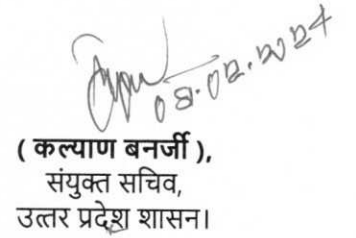 08.02.2024
( कल्याण बनर्जी ),
संयुक्त सचिव,
उत्तर प्रदेश शासन।